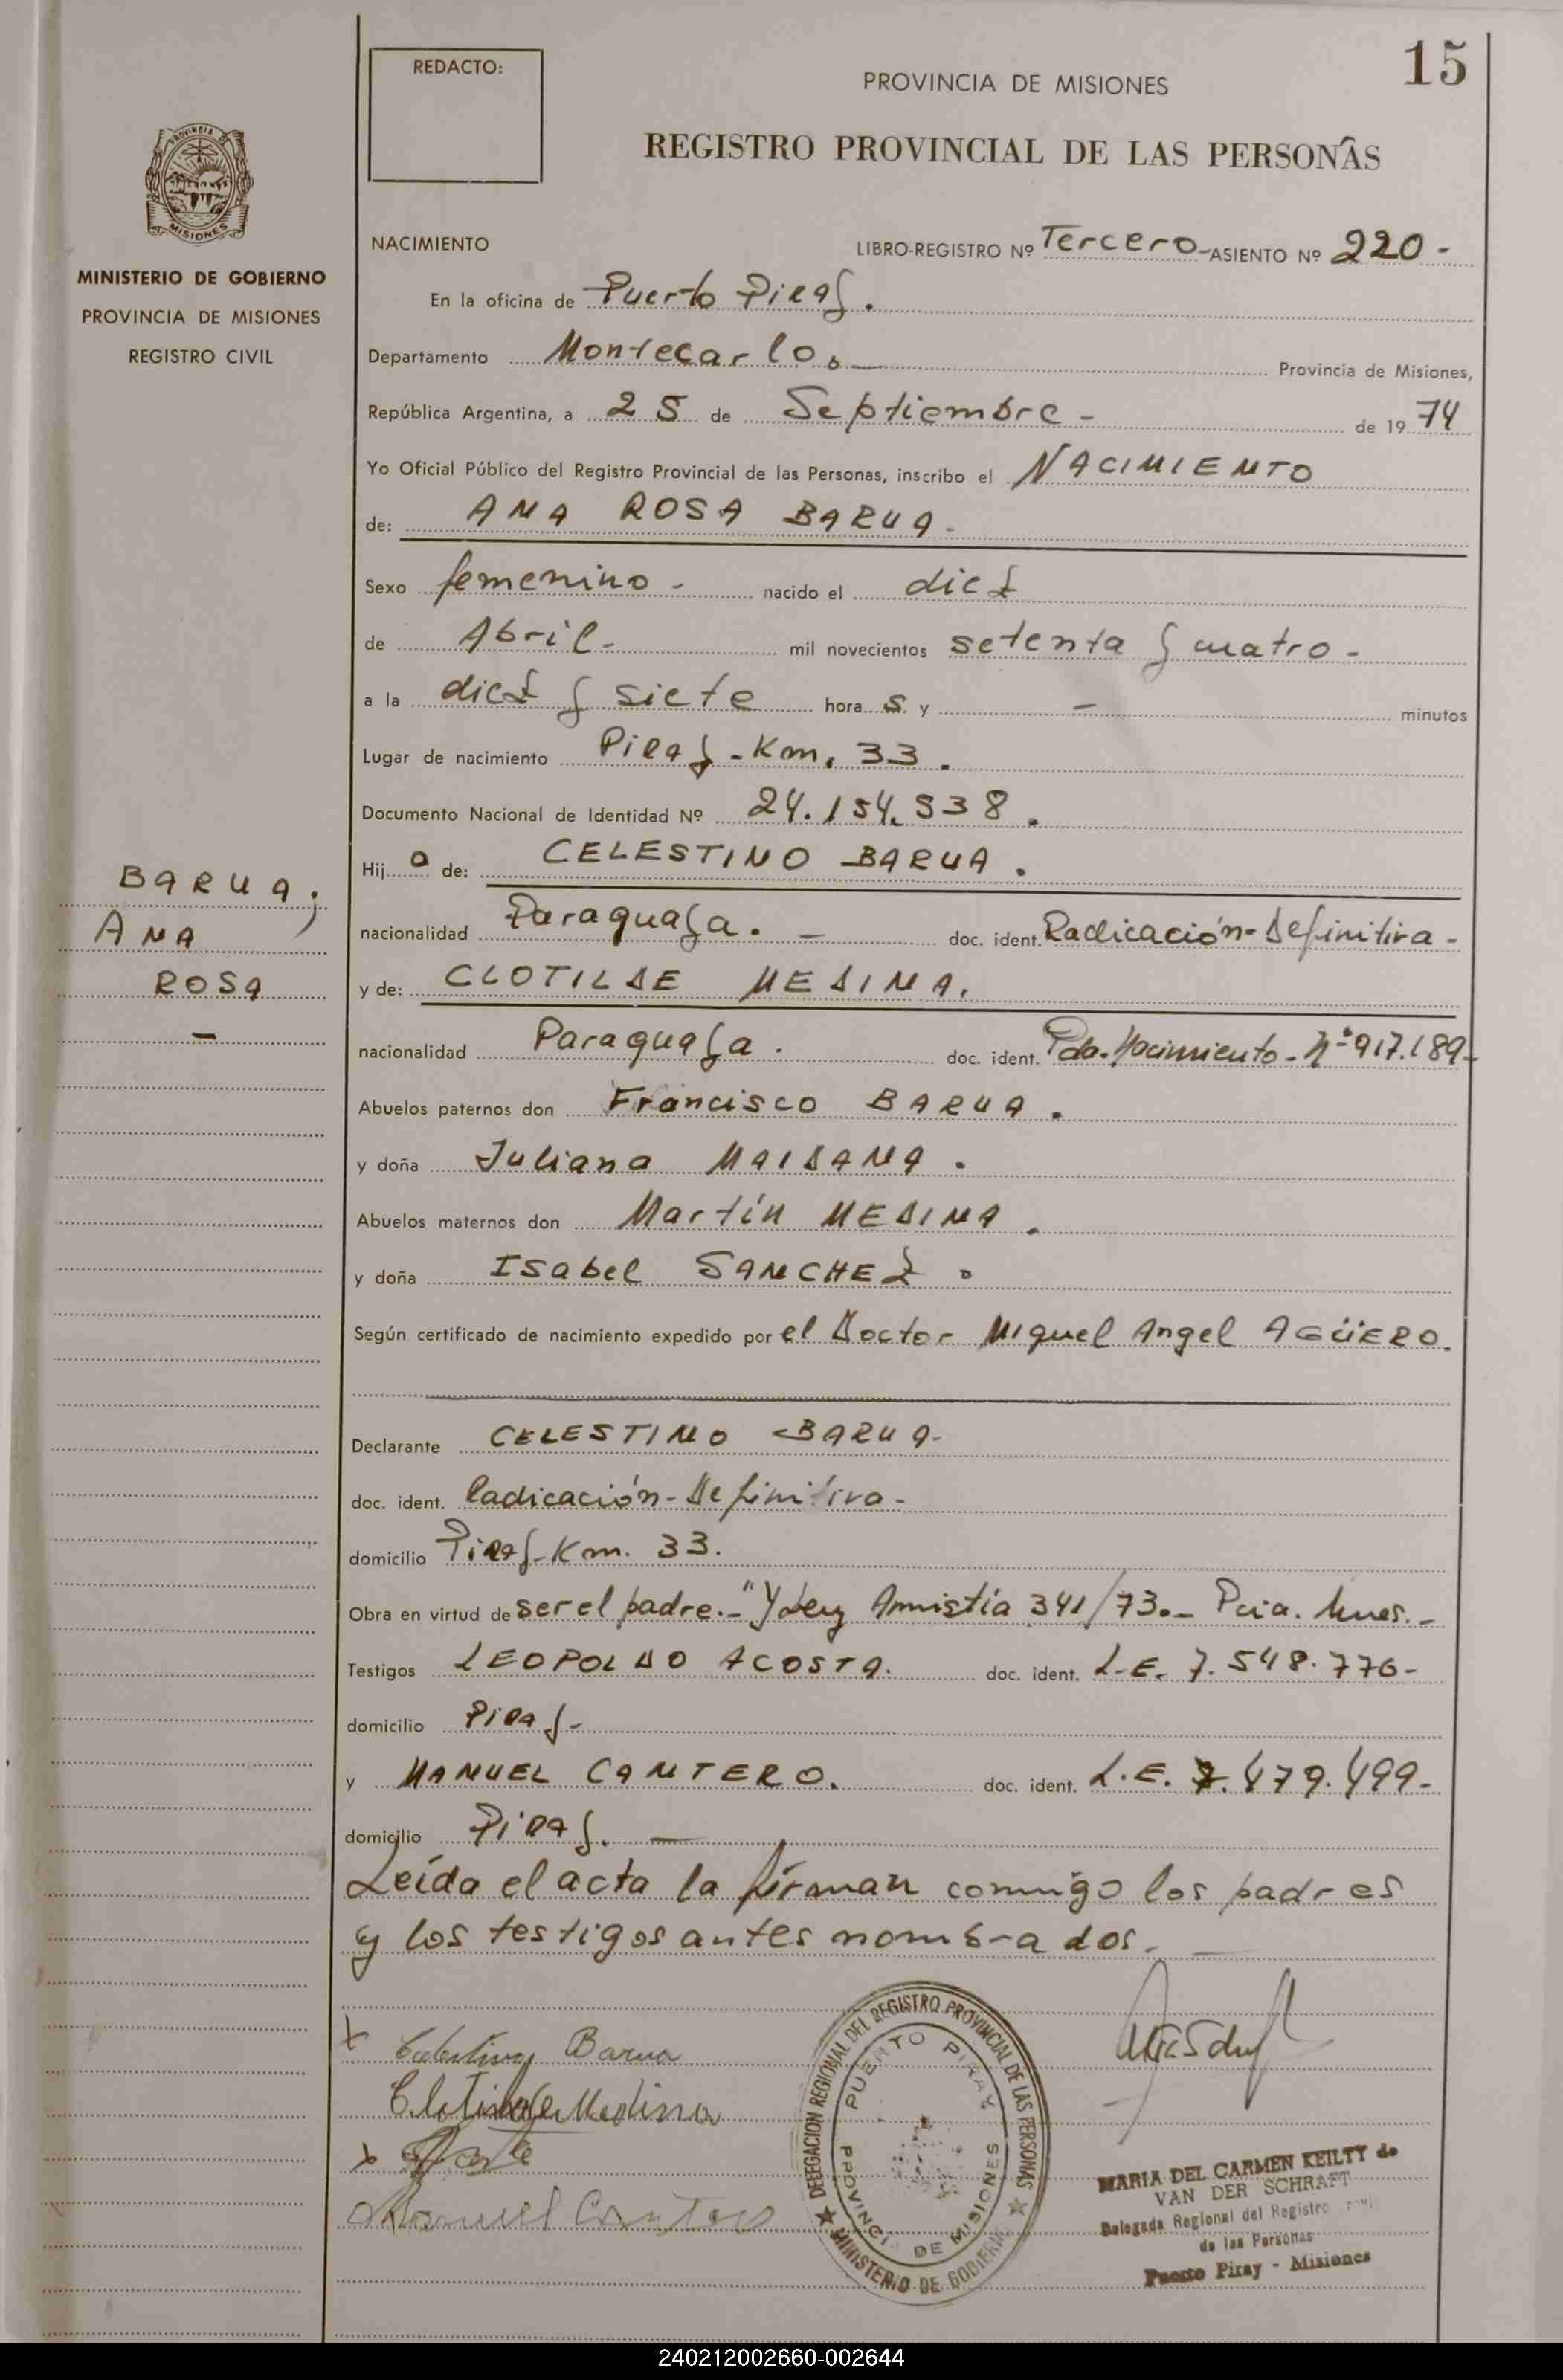 15
REDACTO:
PROVINCIA DE MISIONES
REGISTRO PROVINCIAL DE LAS PERSONAS
PROVINCIA DE
MISIONES
MINISTERIO DE GOBIERNO
PROVINCIA DE MISIONES
REGISTRO CIVIL
NACIMIENTO LIBRO-REGISTRO Nº Tercero - ASIENTO Nº 220 -
En la oficina de Puerto Piray.
Departamento Montecarlo. Provincia de Misiones,
República Argentina, a 25 de Septiembre - de 1974
Yo Oficial Público del Registro Provincial de las Personas, inscribo el NACIMIENTO
de: ANA ROSA BARUA.
Sexo femenino - nacido el diez
de Abril - mil novecientos setenta y cuatro -
a la diez y siete hora s y - minutos
Lugar de nacimiento Piray - Km. 33.
Documento Nacional de Identidad Nº 24.154.938.
Hij a de: CELESTINO BARUA.
BARUA;
ANA
ROSA
-
nacionalidad Paraguaya. - doc. ident. Radicación - Definitiva -
y de: CLOTILDE MEDINA.
nacionalidad Paraguaya. doc. ident. Pda. Nacimiento - Nº 917.189 -
Abuelos paternos don Francisco BARUA.
y doña Juliana MAIDANA.
Abuelos maternos don Martín MEDINA.
y doña Isabel SANCHEZ.
Según certificado de nacimiento expedido por el Doctor Miguel Angel AGÜERO.
Declarante CELESTINO BARUA -
doc. ident. Radicación - Definitiva -
domicilio Piray - Km. 33.
Obra en virtud de ser el padre. - "Y Ley Amnistía 341/73. - Pcia. Mnes. -
Testigos LEOPOLDO ACOSTA. doc. ident. L.E. 7.548.776 -
domicilio Piray -
y MANUEL CANTERO. doc. ident. L.E. 7.479.499 -
domicilio Piray. -
Leída el acta la firman conmigo los padres
y los testigos antes nombrados. -
x Celestino Barua
Clotilde Medina
x
Manuel Cantero
DELEGACION REGIONAL DEL REGISTRO PROVINCIAL DE LAS PERSONAS
MINISTERIO DE GOBIERNO
PUERTO PIRAY
PROVINCIA DE MISIONES
MARIA DEL CARMEN KEILTY de
VAN DER SCHRAFT
Delegada Regional del Registro
de las Personas
Puerto Piray - Misiones
240212002660-002644